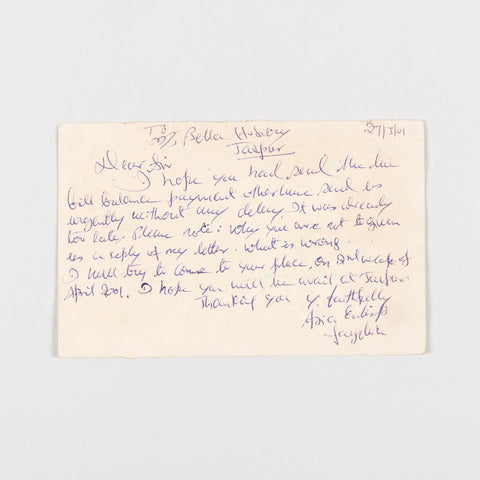 To 27/3/01
M/s Bella Hosiery
Jaipur
Dear Sir
I hope you had send the due
bill balance payment otherwise send us
urgently without any delay. It was already
too late. Please note: why you are not to given
us a reply of my letter. what is wrong.
I will try to come to your place, on 2nd week of
April 2001. I hope you will be avail at Jaipur.
Thanking you y. faithfully